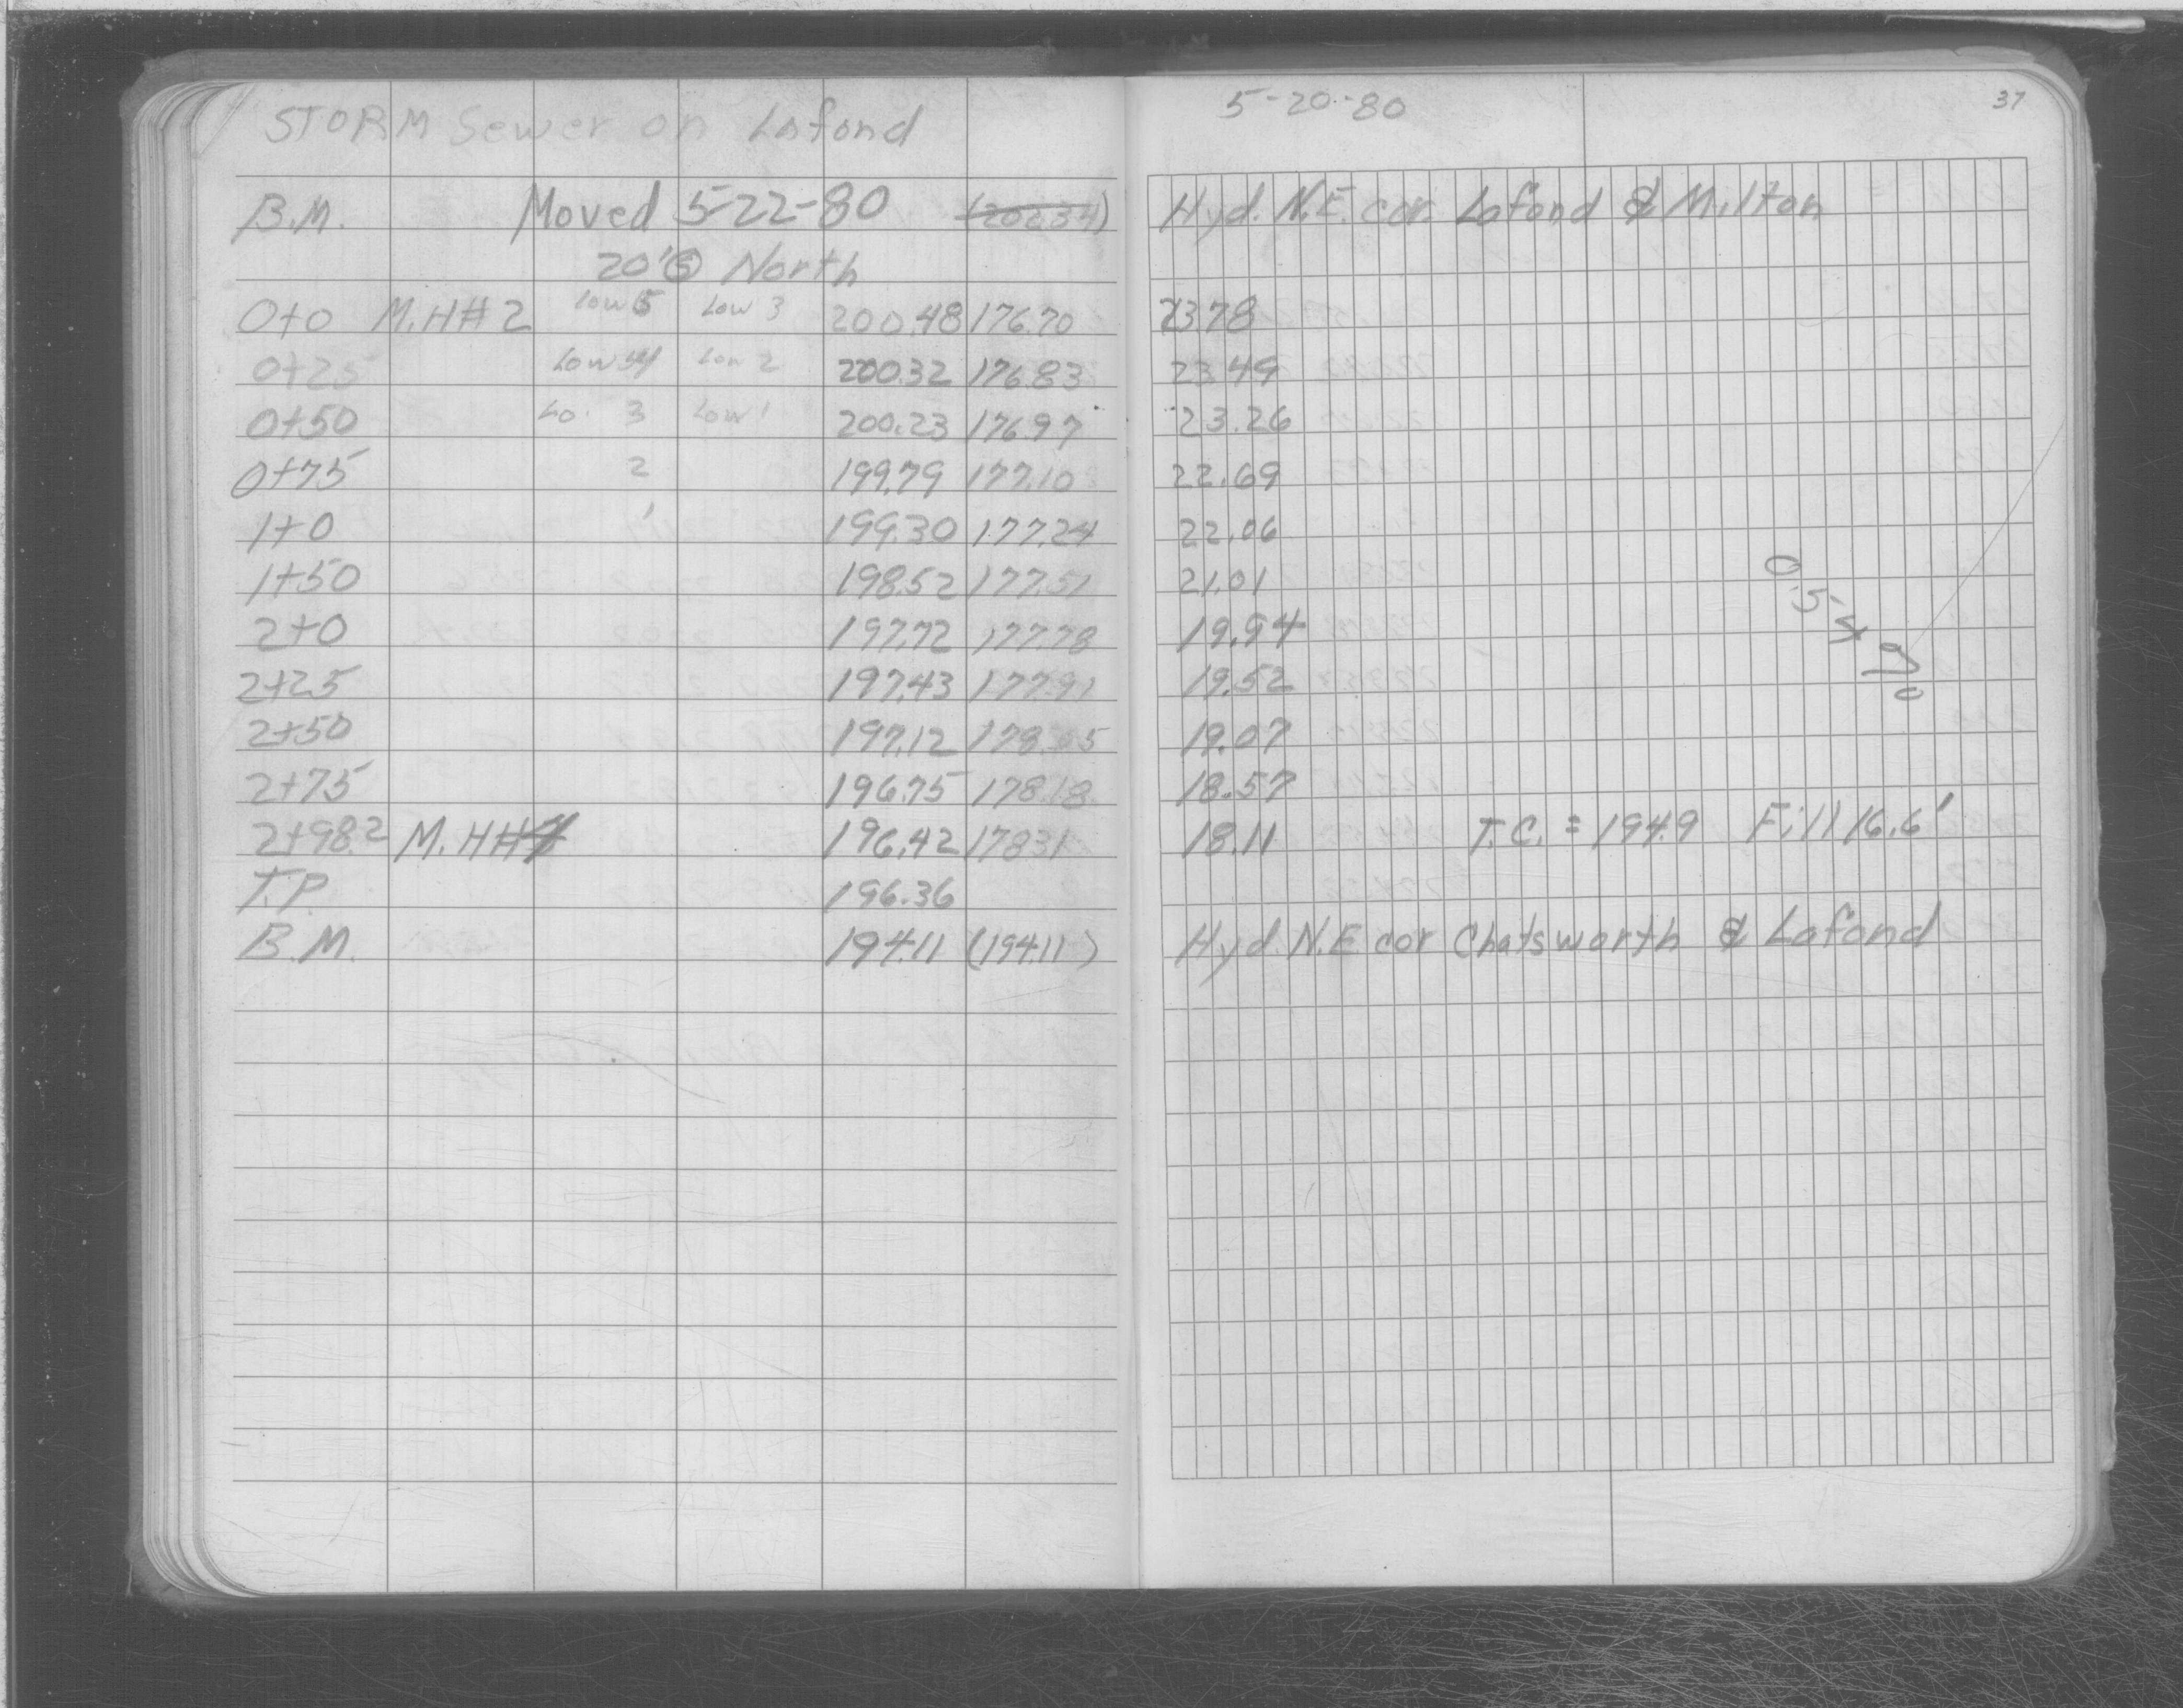 STORM Sewer on Lafond 5-20-80 37
B.M. Moved 5-22-80 (202.34) Hyd. N.E. cor. Lafond & Milton
20' North
0+0 M.H#2 Low 5 Low 3 200.48 176.70 23.78
0+25 Low 4 Low 2 200.32 176.83 23.49
0+50 Lo. 3 Low 1 200.23 176.97 23.26
0+75 2 199.79 177.10 22.69
1+0 1 199.30 177.24 22.06
1+50 198.52 177.51 21.01
2+0 197.72 177.78 19.94
2+25 197.43 177.91 19.52
2+50 197.12 178.05 19.07
2+75 196.75 178.18 18.57
0.54%
2+98.2 M.H#1 196.42 178.31 18.11 T.C. = 194.9 Fill 16.6'
T.P. 196.36
B.M. 194.11 (194.11) Hyd. N.E cor Chatsworth & Lafond